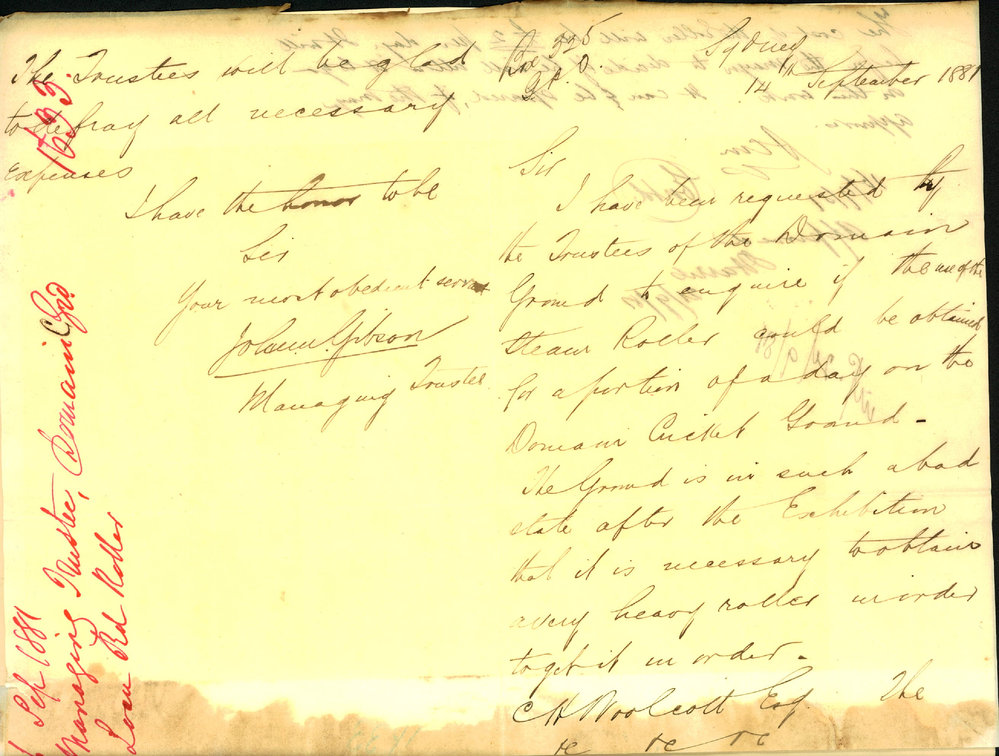 Sydney
14th September 1881
Sir
I have been requested by
the Trustees of the Domain
Ground to enquire if the use of the
Steam Roller could be obtained
for a portion of a day on the
Domain Cricket Ground -
The Ground is in such a bad
state after the Exhibition
that it is necessary to obtain
a very heavy roller in order
to get it in order -
C H Woolcott Esq. The
&c &c &c
The Trustees will be glad
to defray all necessary
expenses
I have the honor to be
Sir
Your most obedient servant
Gibson
Managing Trustee
Sep 1881
Managing Trustee, Domain C Grd
Loan Rd Roller